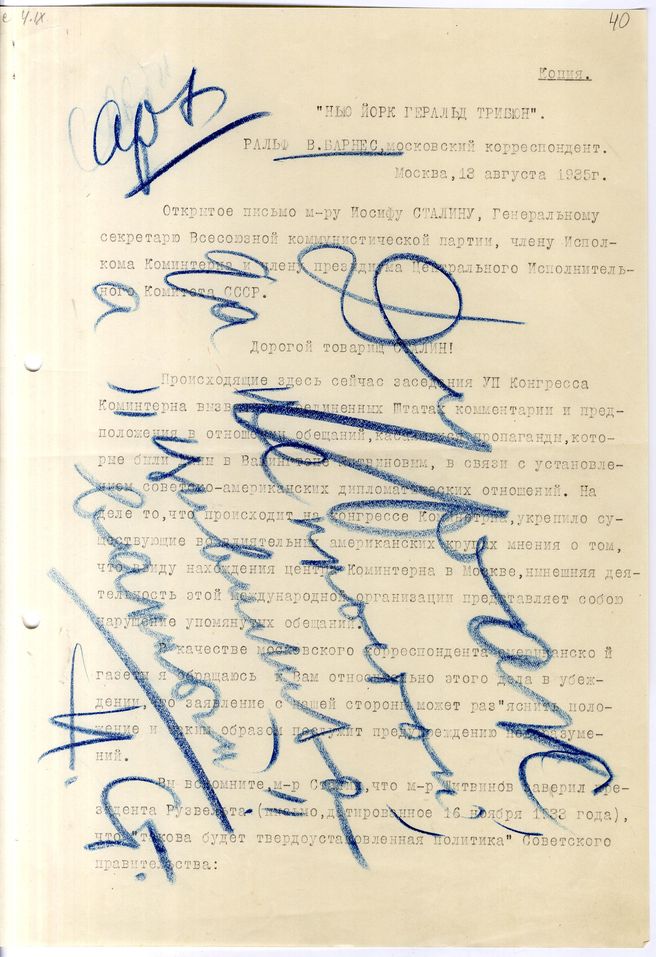 с 4.IX
40
Копия.
арх
"НЬЮ ЙОРК ГЕРАЛЬД ТРИБЮН".
РАЛЬФ В.БАРНЕС,московский корреспондент.
Москва,13 августа 1935г.
Открытое письмо м-ру Иосифу СТАЛИНУ, Генеральному
секретарю Всесоюзной коммунистической партии, члену Испол-
кома Коминтерна и члену президиума Центрального Исполнитель-
ного Комитета СССР.
Дорогой товарищ СТАЛИН!
Происходящие здесь сейчас заседания УП Конгресса
Коминтерна вызвали в Соединенных Штатах комментарии и пред-
положения в отношении обещаний,касающихся пропаганды,кото-
рые были даны в Вашингтоне Литвиновым, в связи с установле-
нием советско-американских дипломатических отношений. На
деле то,что происходит на конгрессе Коминтерна,укрепило су-
ществующие во влиятельных американских кругах мнения о том,
что ввиду нахождения центра Коминтерна в Москве,нынешняя дея-
тельность этой международной организации представляет собою
нарушение упомянутых обещаний.
В качестве московского корреспондента американско й
газеты я обращаюсь к Вам относительно этого дела в убеж-
дении,что заявление с нашей сторон может раз"яснить поло-
жение и таким образом послужит предупреждению недоразуме-
ний.
Вы вспомните,м-р Сталин,что м-р Литвинов заверил пре-
зидента Рузвельта (письмо,датированное 16 ноября 1933 года),
что "такова будет твердоустановленная политика" Советского
правительства:
И. Ст.